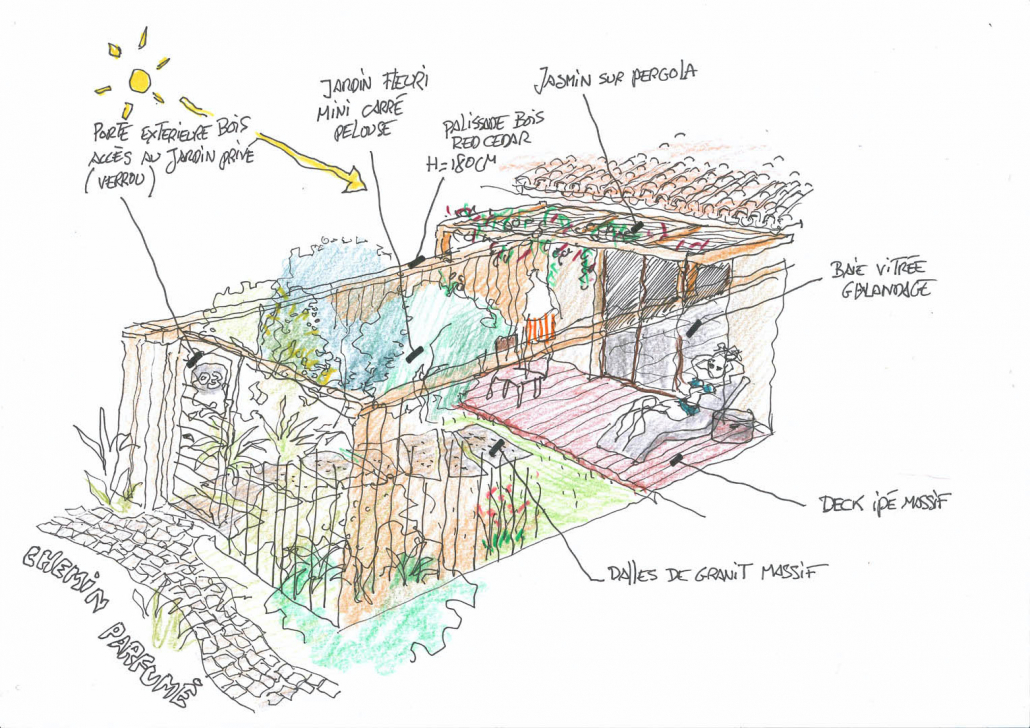 PORTE EXTERIEURE BOIS
ACCÈS AU JARDIN PRIVÉ
(VERROU)
JARDIN FLEURI
MINI CARRÉ
PELOUSE
PALISSADE BOIS
RED CEDAR
H=180CM
JASMIN SUR PERGOLA
BAIE VITRÉE
GALANDAGE
DECK IPÉ MASSIF
DALLES DE GRANIT MASSIF
CHEMIN
PARFUMÉ